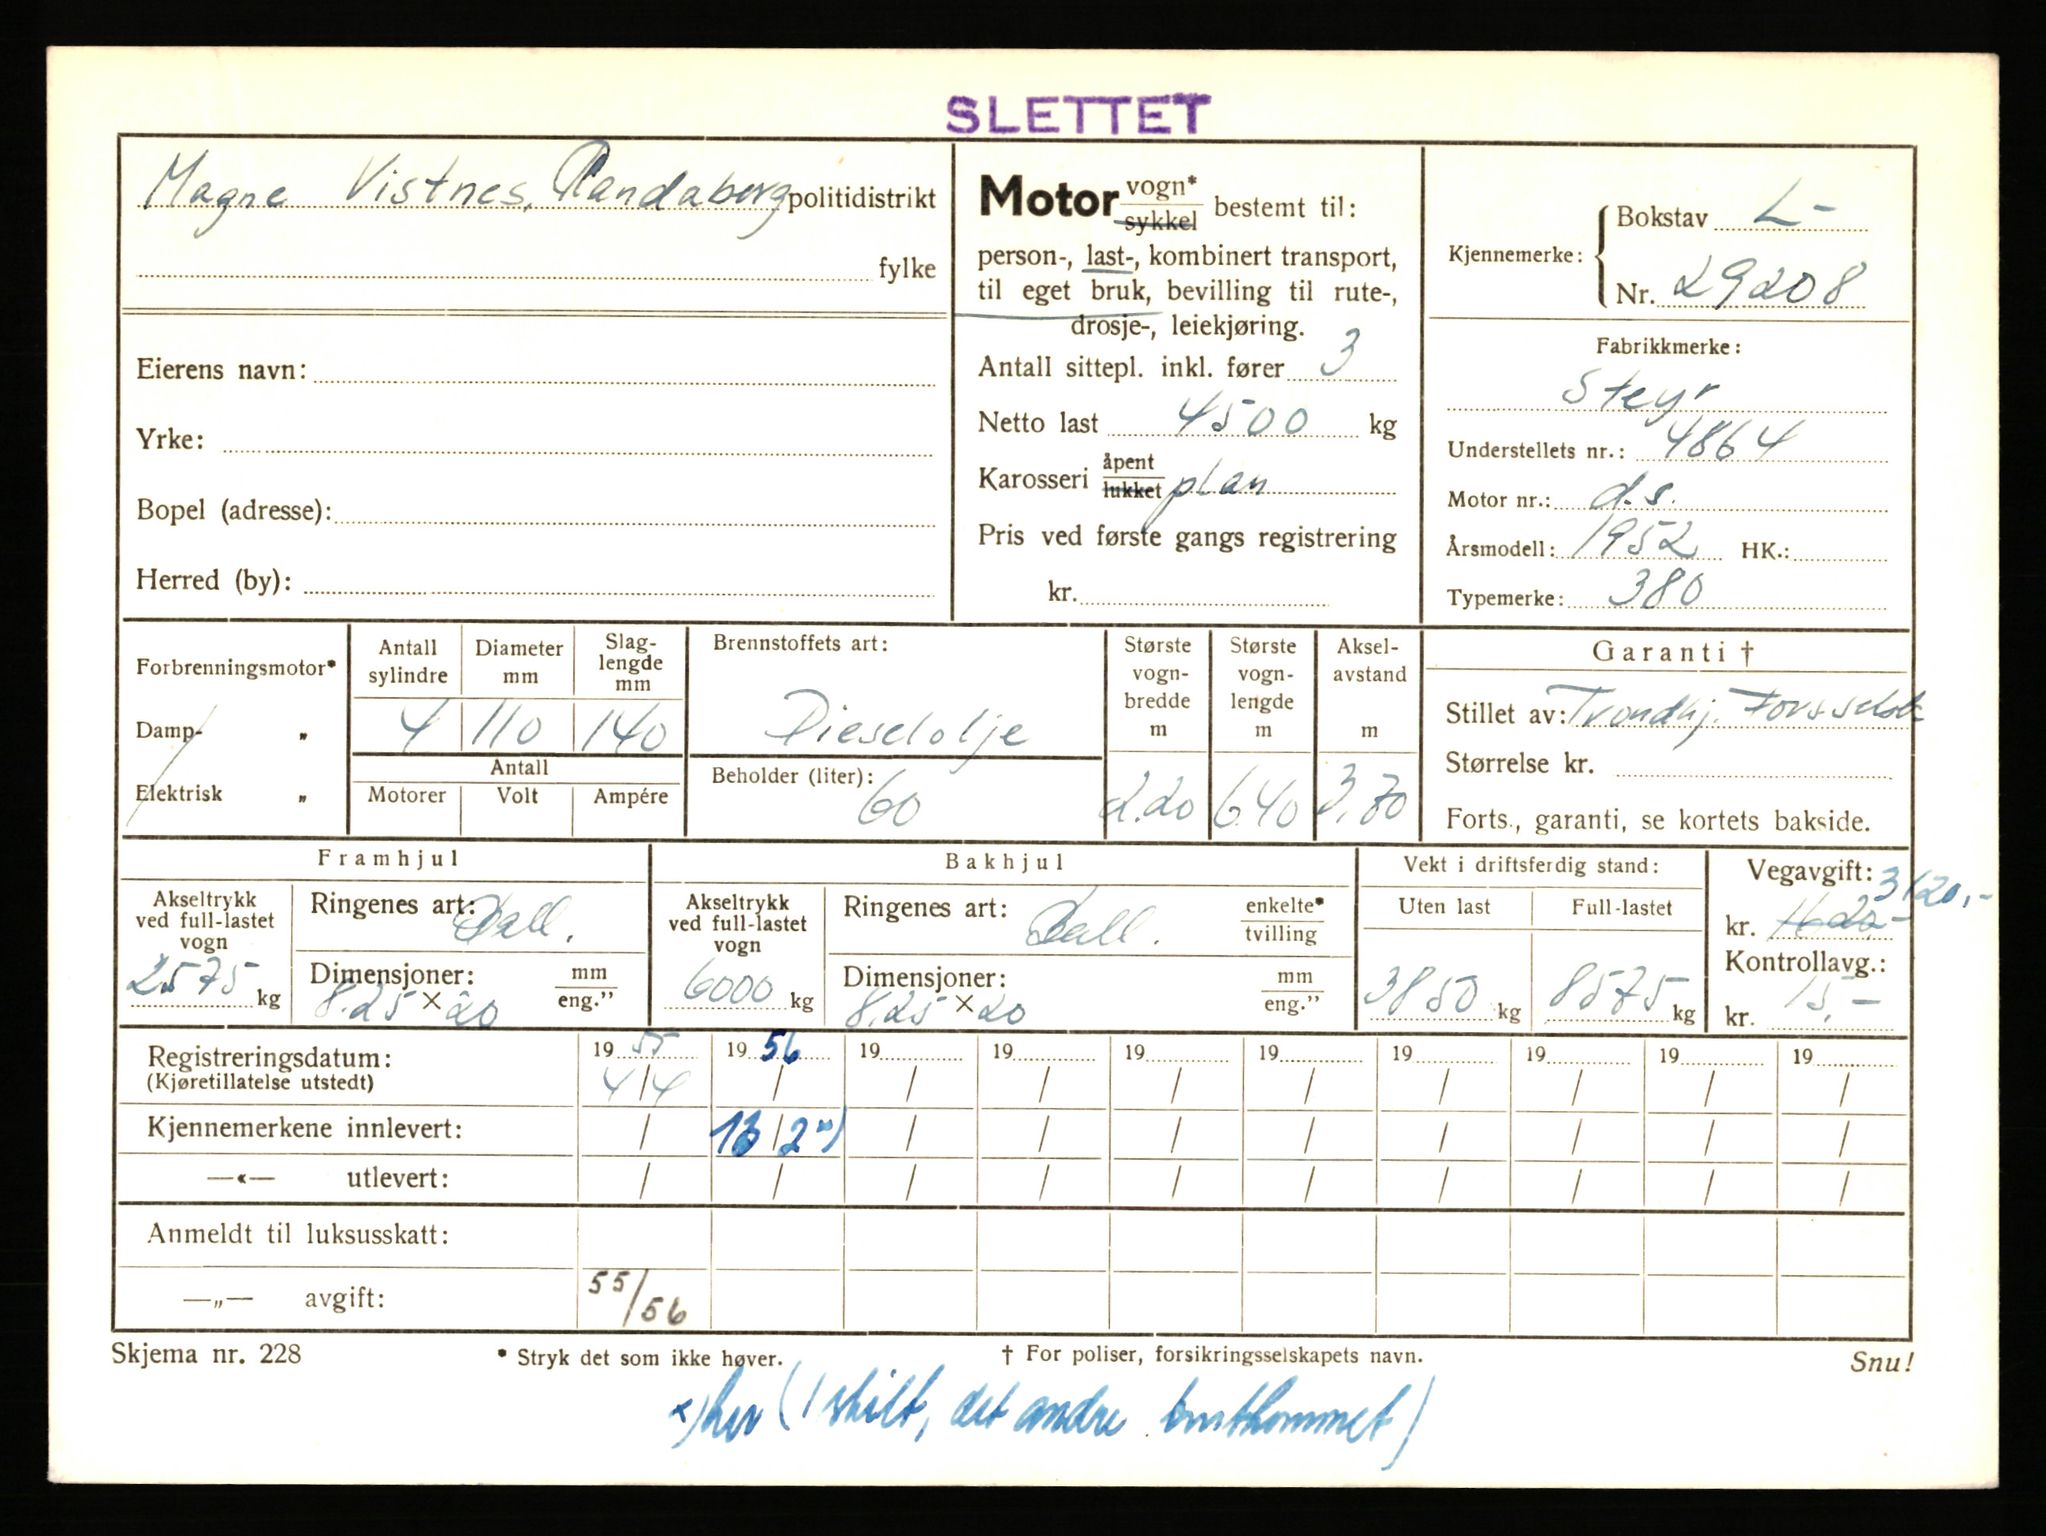 SLETTET
Magne Vistnes, Randaberg politidistrikt
fylke
Eierens navn:
Yrke:
Bopel (adresse):
Herred (by):
Motor vogn* sykkel bestemt til:
person-, last-, kombinert transport,
til eget bruk, bevilling til rute-,
drosje-, leiekjøring.
Antall sittepl. inkl. fører 3
Netto last 4500 kg
Karosseri åpent lukket plan
Pris ved første gangs registrering
kr.
Kjennemerke:
Bokstav L-
Nr. 29208
Fabrikkmerke:
Steyr
Understellets nr.: 4864
Motor nr.: d.s.
Årsmodell: 1952 HK.:
Typemerke: 380
Forbrenningsmotor*
Damp- „
Elektrisk „
Antall sylindre
Diameter mm
Slag-lengde mm
4 110 140
Antall
Motorer Volt Ampére
Brennstoffets art:
Dieselolje
Beholder (liter):
60
Største vogn-bredde m
2.20
Største vogn-lengde m
6.40
Aksel-avstand m
3,70
Garanti †
Stillet av: Trondhj. Forsselsk.
Størrelse kr.
Forts., garanti, se kortets bakside.
Framhjul
Akseltrykk ved full-lastet vogn
2575 kg
Ringenes art:
Dimensjoner: mm eng."
8.25 × 20
Bakhjul
Akseltrykk ved full-lastet vogn
6000 kg
Ringenes art: enkelte* tvilling
Dimensjoner: mm eng."
8.25 × 20
Vekt i driftsferdig stand:
Uten last Full-lastet
3850 kg 8575 kg
Vegavgift: 3120,-
kr.
Kontrollavg.:
kr. 15,-
Registreringsdatum: 19 55 19 56 19 19 19 19 19 19 19 19
(Kjøretillatelse utstedt) 4/4 / / / / / / / / /
Kjennemerkene innlevert: / 13/2 x) / / / / / / / /
—«— utlevert: / / / / / / / / / /
Anmeldt til luksusskatt:
—„— avgift: 55/56
Skjema nr. 228 * Stryk det som ikke høver. † For poliser, forsikringsselskapets navn. Snu!
x) her (1 skilt, det andre bortkommet)